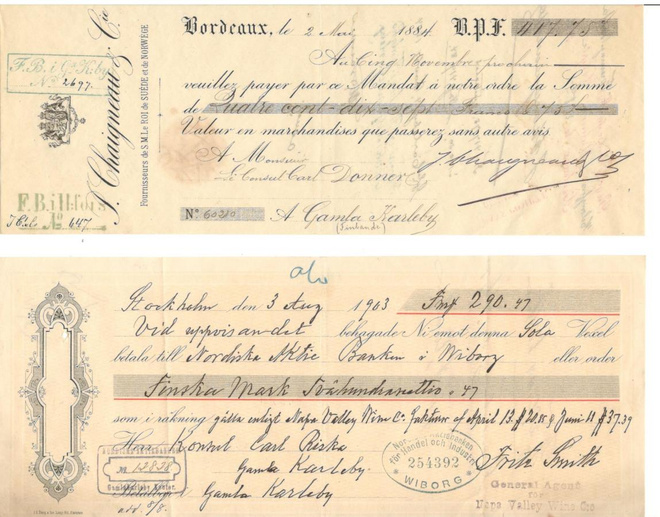 Bordeaux, le 2 Mai 1884 B.P.F. 417.75
Au Cinq Novembre prochain
veuillez payer par ce Mandat à notre ordre la Somme
de Quatre cent-dix-sept Francs 75
Valeur en marchandises que passerez sans autre avis
A Monsieur
Le Consul Carl Donner
J. Chaigneau & Co
No 60210
A Gamla Karleby
(Finlande)
J. Chaigneau & Cie
Fournisseurs de S.M. Le ROI de SUÈDE et de NORWÈGE
F. B. i Gla K:by
No 2697.
F. B. i H:fors
No 647
Stockholm den 3 Aug 1903 Fmk 290.47
Vid uppvisandet behagade Ni emot denna Sola Vexel
betala till Nordiska Aktie Banken i Wiborg eller order
Finska Mark Tvåhundranittio .47
som i räkning ställa enligt Napa Valley Wine Co Fakturor af April 13. $20.15 & Juni 11 $37.39
Herr Konsul Carl Riska
Gamla Karleby.
No 12828
Gamlakarleby Kontor.
Gamla Karleby
för Handel och Industri
254392
WIBORG
Fritz Smith
General Agent
for
Napa Valley Wine Co